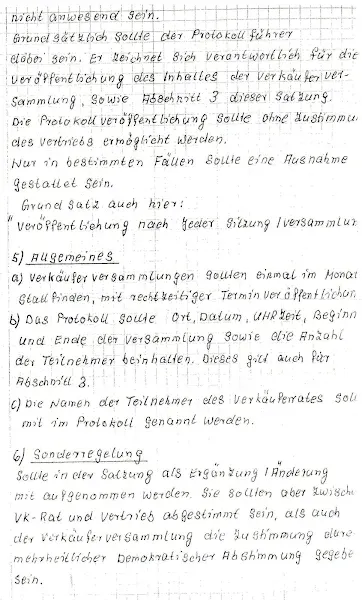 nicht anwesend sein.
Grundsätzlich sollte der Protokollführer
dabei sein. Er zeichnet sich verantwortlich für die
Veröffentlichung des Inhaltes der Verkäuferver-
sammlung, sowie Abschnitt 3 dieser Satzung.
Die Protokollveröffentlichung sollte ohne Zustimmu
des Vertriebs ermöglicht werden.
Nur in bestimmten Fällen sollte eine Ausnahme
gestattet sein.
Grundsatz auch hier:
"Veröffentlichung nach jeder Sitzung / Versammlun
5) Allgemeines
a) Verkäuferversammlungen sollten einmal im Monat
stattfinden, mit rechtzeitiger Terminveröffentlichun
b) Das Protokoll sollte Ort, Datum, Uhrzeit, Beginn
und Ende der Versammlung sowie die Anzahl
der Teilnehmer beinhalten. Dieses gilt auch für
Abschnitt 3.
c) Die Namen der Teilnehmer des Verkäuferrates soll
mit im Protokoll genannt werden.
6) Sonderregelung
Sollte in der Satzung als Ergänzung / Änderung
mit aufgenommen werden. Sie sollten aber zwisch
VK-Rat und Vertrieb abgestimmt sein, als auch
der Verkäuferversammlung die Zustimmung durc
mehrheitlicher Demokratischer Abstimmung gegebe
sein.